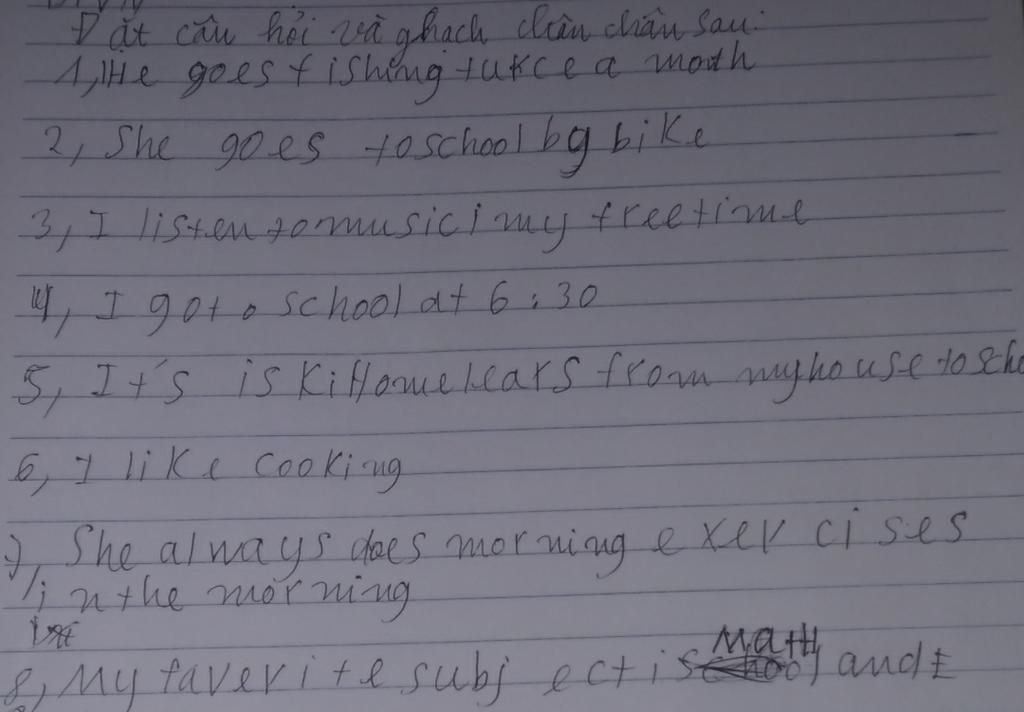 Đặt câu hỏi và ghạch chân chân sau:
1, He goes fishing twice a month
2, She goes to school by bike
3, I listen to music i my free time
4, I go to school at 6:30
5, It's is killomelears from my house to scho
6, I like cooking
7, She always does morning exercises
in the morning
8, My faverite subject is Math and E